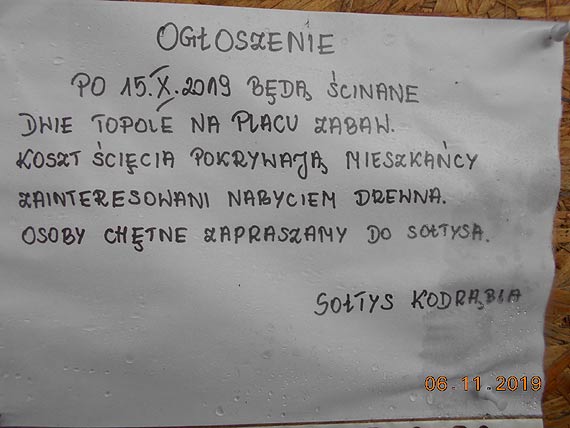 OGŁOSZENIE
PO 15.X.2019 BĘDĄ ŚCINANE
DWIE TOPOLE NA PLACU ZABAW.
KOSZT ŚCIĘCIA POKRYWAJĄ MIESZKAŃCY
ZAINTERESOWANI NABYCIEM DREWNA.
OSOBY CHĘTNE ZAPRASZAMY DO SOŁTYSA.
SOŁTYS KODRĄBIA
06.11.2019